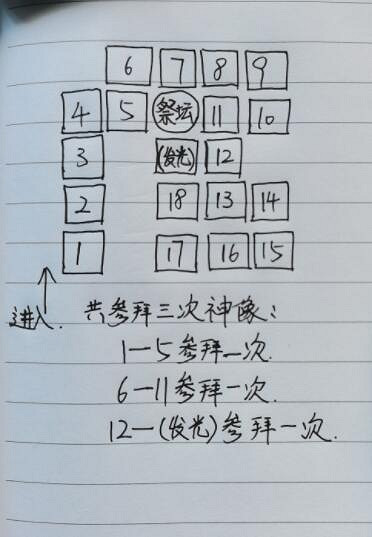 6 7 8 9
4 5 祭坛 11 10
3 (发光) 12
2 18 13 14
1 17 16 15
进入.
共参拜三次神像:
1—5参拜一次.
6—11参拜一次.
12—(发光)参拜一次.